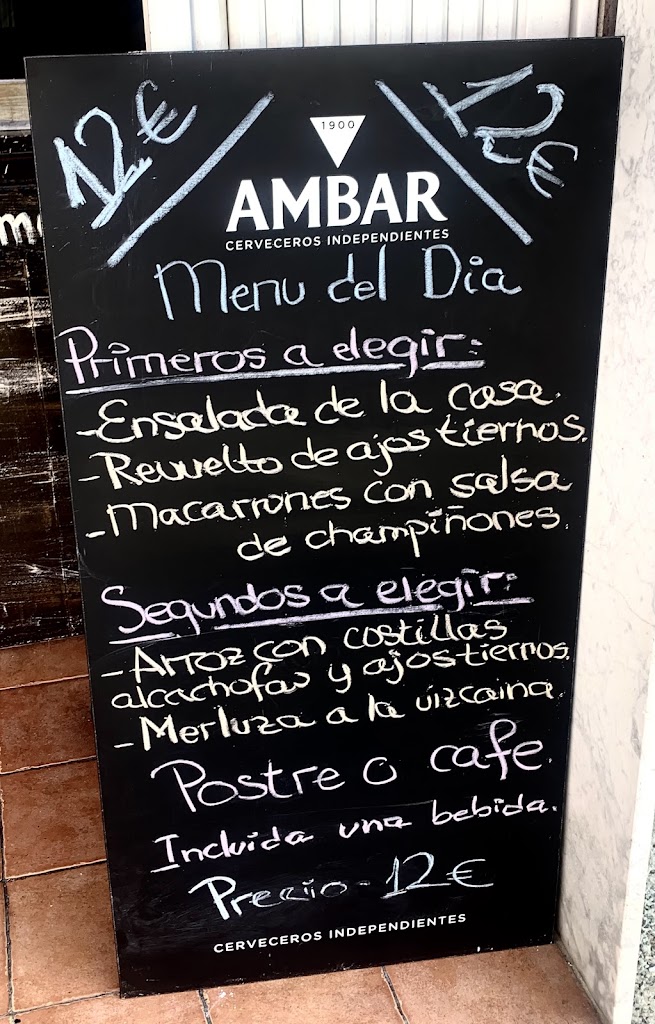 12€
12€
1900
AMBAR
CERVECEROS INDEPENDIENTES
Menu del Dia
Primeros a elegir:
-Ensalada de la casa.
-Revuelto de ajos tiernos.
-Macarrones con salsa
de champiñones.
Segundos a elegir:
-Arroz con costillas
alcachofas y ajos tiernos.
-Merluza a la vizcaina.
Postre o cafe.
Incluida una bebida.
Precio-12€
CERVECEROS INDEPENDIENTES